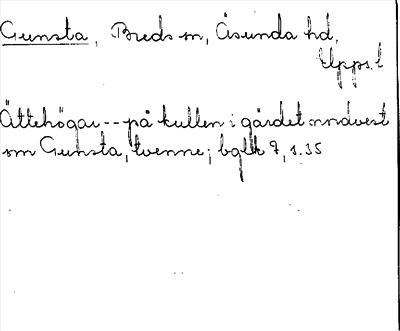 Gunsta, Breds sn, Åsunda hd,
Upps. l
Ättehögar -- på kullen i gärdet nordvest
om Gunsta, tvenne; bglk 7, s. 35